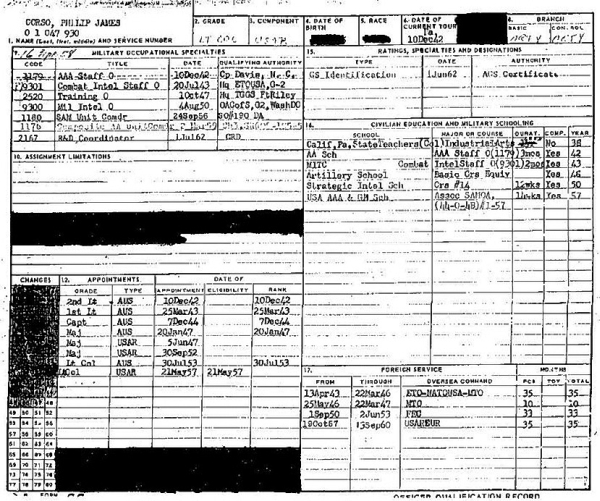 CORSO, PHILIP JAMES
O 1 047 930
1. NAME (Last, first, middle) AND SERVICE NUMBER
2. GRADE
LT COL
3. COMPONENT
USAR
4. DATE OF BIRTH
5. RACE
6. DATE OF CURRENT TOUR
10Dec42
BRANCH
BASIC
CONTROL
ARTY
ARTY
MILITARY OCCUPATIONAL SPECIALTIES
CODE TITLE DATE QUALIFYING AUTHORITY
1179 AAA Staff O 10Dec42 Cp Davis, N. C.
9301 Combat Intel Staff O 20Jul43 Hq ETOUSA, G-2
2520 Training O 1Oct47 Hq TGGS, FtRiley
9300 Mil Intel O 4Aug50 OACofS, G2, WashDC
1180 SAM Unit Comdr 24Sep56 SO#190 DA
1176
2167 R&D Coordinator 1Jul62 CRD
10. ASSIGNMENT LIMITATIONS
15. RATINGS, SPECIALTIES AND DESIGNATIONS
TYPE DATE AUTHORITY
GS Identification 1Jun62 ACS Certificate
CIVILIAN EDUCATION AND MILITARY SCHOOLING
SCHOOL MAJOR OR COURSE DURAT. COMP. YEAR
Calif, Pa, StateTeachers(Col) Industrial Arts No 38
AA Sch AAA Staff O(1179) 3mos Yes 42
MITC Combat IntelStaff O(9301) 2mos Yes 43
Artillery School Basic Crs Equiv Yes 46
Strategic Intel Sch Crs #14 12wks Yes 50
USA AAA & GM Sch Assoc SAMOA, 14wks Yes 57
(44-O-4B)#1-57
CHANGES
12. APPOINTMENTS DATE OF
GRADE TYPE APPOINTMENT ELIGIBILITY RANK
2nd Lt AUS 10Dec42 10Dec42
1st Lt AUS 25Mar43 25Mar43
Capt AUS 7Dec44 7Dec44
Maj AUS 20Jan47 20Jan47
Maj USAR 5Jun47
Maj USAR 30Sep52
Lt Col AUS 30Jul53 30Jul53
LtCol USAR 21May57 21May57
17. FOREIGN SERVICE MONTHS
FROM THROUGH OVERSEA COMMAND PCS TDY TOTAL
13Apr43 22Mar46 ETO-NATOUSA-MTO 35 35
25May46 22Mar47 MTO 10 10
1Sep50 2Jun53 FEC 33 33
19Oct57 13Sep60 USAREUR 35 35
49 50 51 52
53 54 55 56
57 58 59 60
61 62 63 64
65 66 67 68
69 70 71 72
73 74 75 76
77 78 79 80
OFFICER QUALIFICATION RECORD